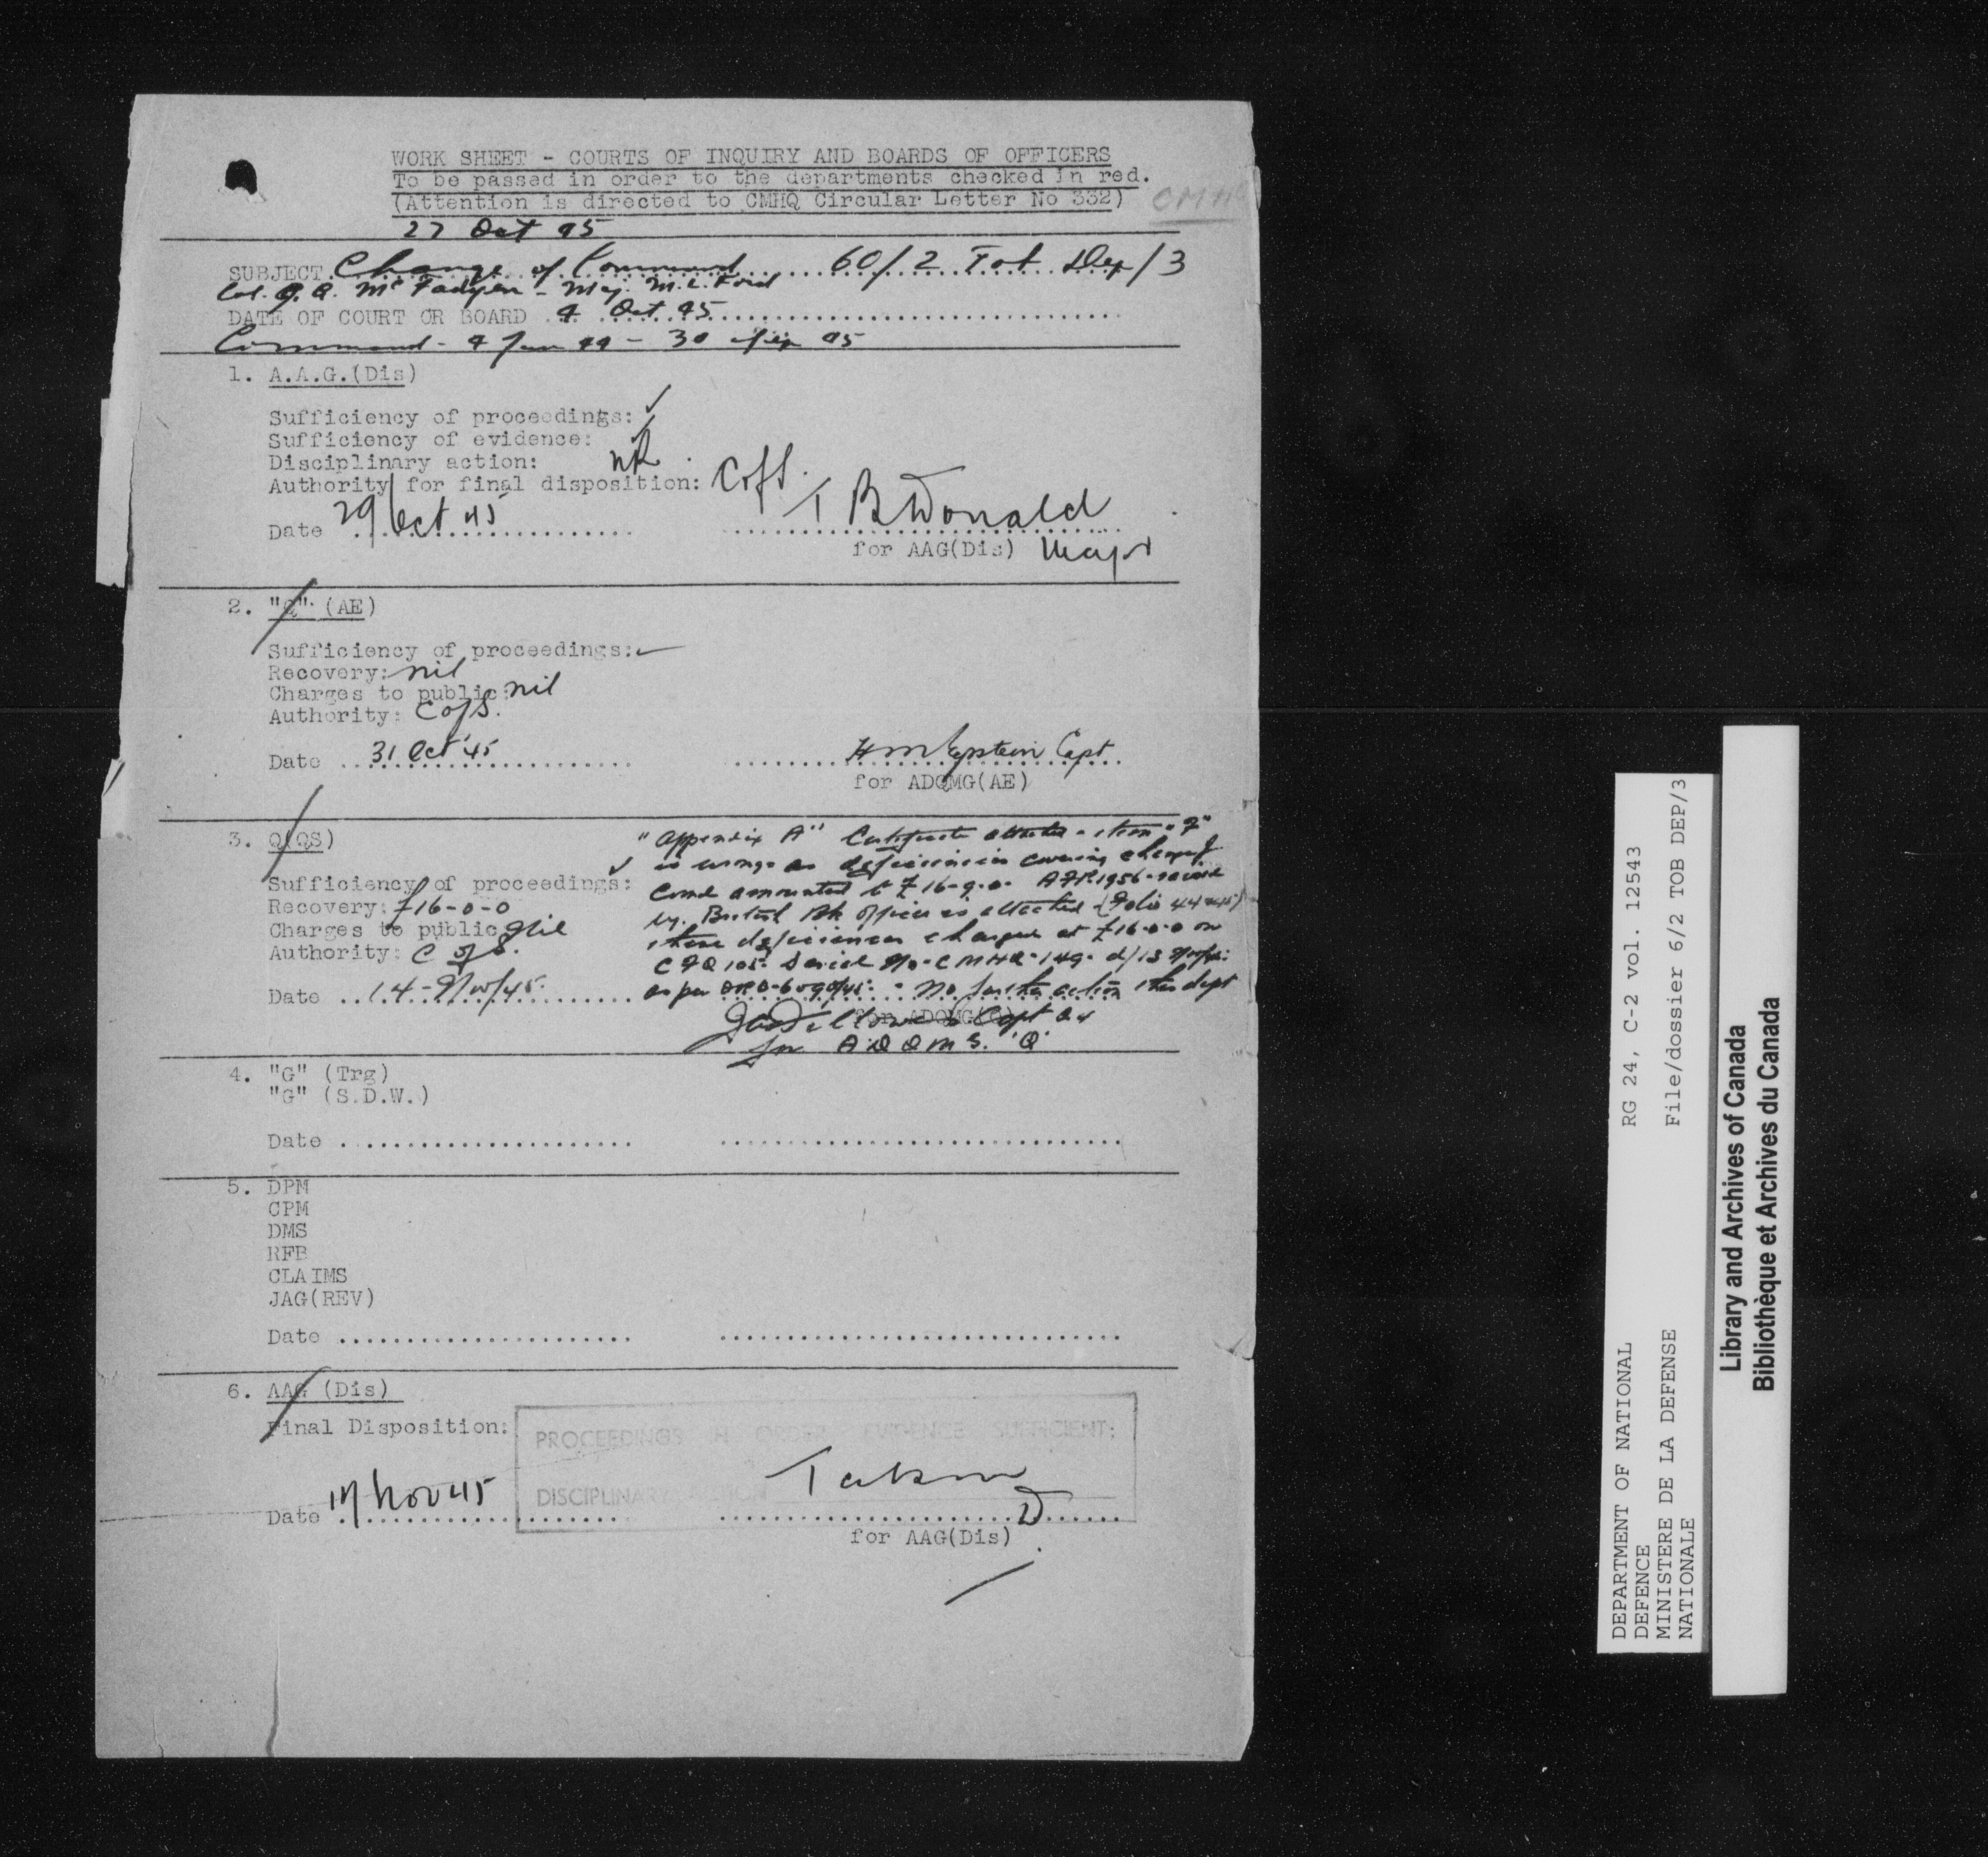 WORK SHEET - COURTS OF INQUIRY AND BOARDS OF OFFICERS
To be passed in order to the departments checked in red.
(Attention is directed to CMHQ Circular Letter No 332) CMHQ
27 Oct 45
SUBJECT. Change of Command 60/2 Tob Dep/3
Col. G. A. McFadyen - Maj. M. L. Ford
DATE OF COURT OR BOARD 4 Oct 45
Command - 4 Jun 44 - 30 Sep 45
1. A.A.G.(Dis)
Sufficiency of proceedings: ✓
Sufficiency of evidence: ✓
Disciplinary action: NR.
Authority for final disposition: C of S.
Date 29 Oct 45 T B Donald
for AAG(Dis) Major
2. "Q" (AE)
Sufficiency of proceedings: ✓
Recovery: nil
Charges to public: nil
Authority: C of S.
Date 31 Oct '45 H M Epstein Capt.
for ADQMG(AE)
3. Q(QS)
"Appendix A" Certificate attached - item "7"
✓ is wrong as deficiencies covering change of
Sufficiency of proceedings:
Comd amounted to £16-9-0.
Recovery: £16-0-0
by officer is attached (Folio 44
Charges to public nil
these deficiencies charged at £16-0-0 on
Authority: C of S.
CFQ 105. Serial No-CMHQ-149- d/13 Nov/45:
Date 14-Nov/45. as per - No further action this dept
for ADQMG(Q) Capt
for A.D.Q.M.G. 'Q'
4. "G" (Trg)
"G" (S.D.W.)
Date
5. DPM
CPM
DMS
RFB
CLAIMS
JAG(REV)
Date
6. AAG (Dis)
Final Disposition:
PROCEEDINGS IN ORDER EVIDENCE SUFFICIENT:
DISCIPLINARY ACTION Taken
Date 17 Nov 45 D
for AAG(Dis)
DEPARTMENT OF NATIONAL DEFENCE
MINISTERE DE LA DEFENSE NATIONALE
RG 24, C-2 vol. 12543
File/dossier 6/2 TOB DEP/3
Library and Archives of Canada
Bibliothèque et Archives du Canada